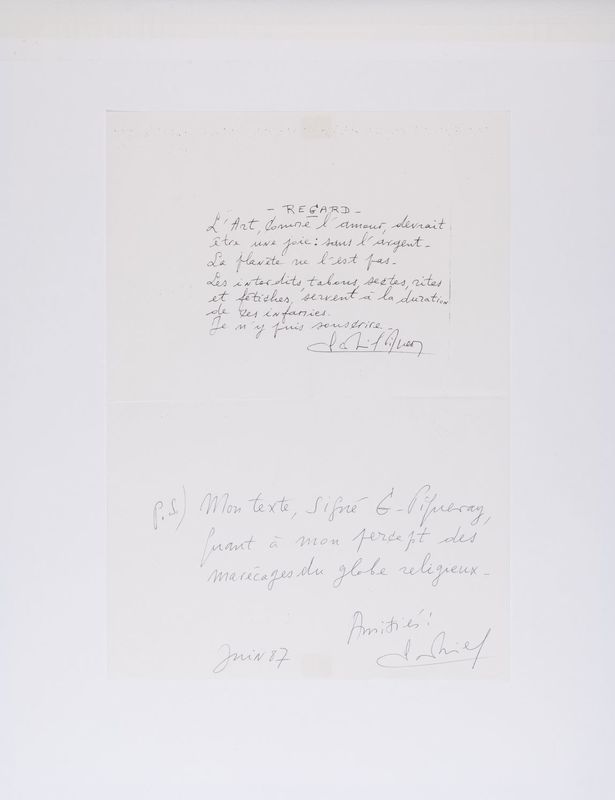 - REGARD -
L'Art, comme l'amour, devrait
être une joie : sans l'argent -
La planète ne l'est pas -
Les interdits, tabous, sectes, rites
et fétiches, servent à la duration
de ses infamies.
Je n'y puis souscrire -
P.S) Mon texte, signé G - Piqueray,
quant à mon percept des
marécages du globe religieux -
Amitiés !
Juin 87